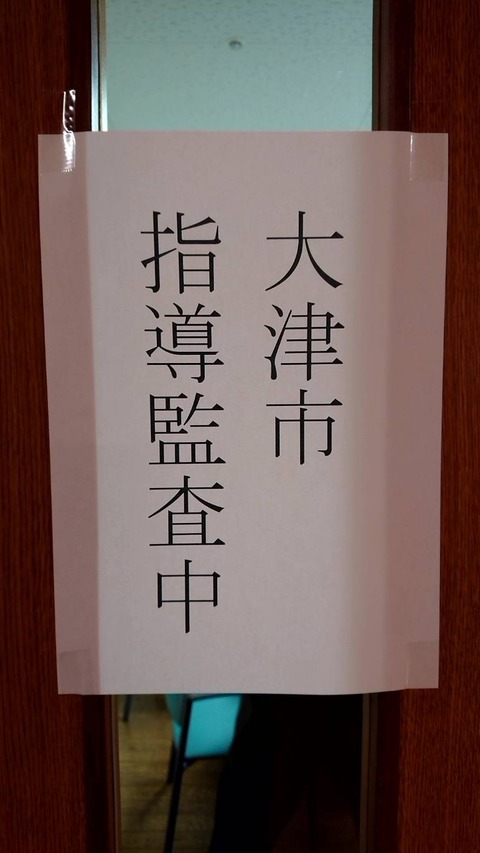 大津市
指導監査中